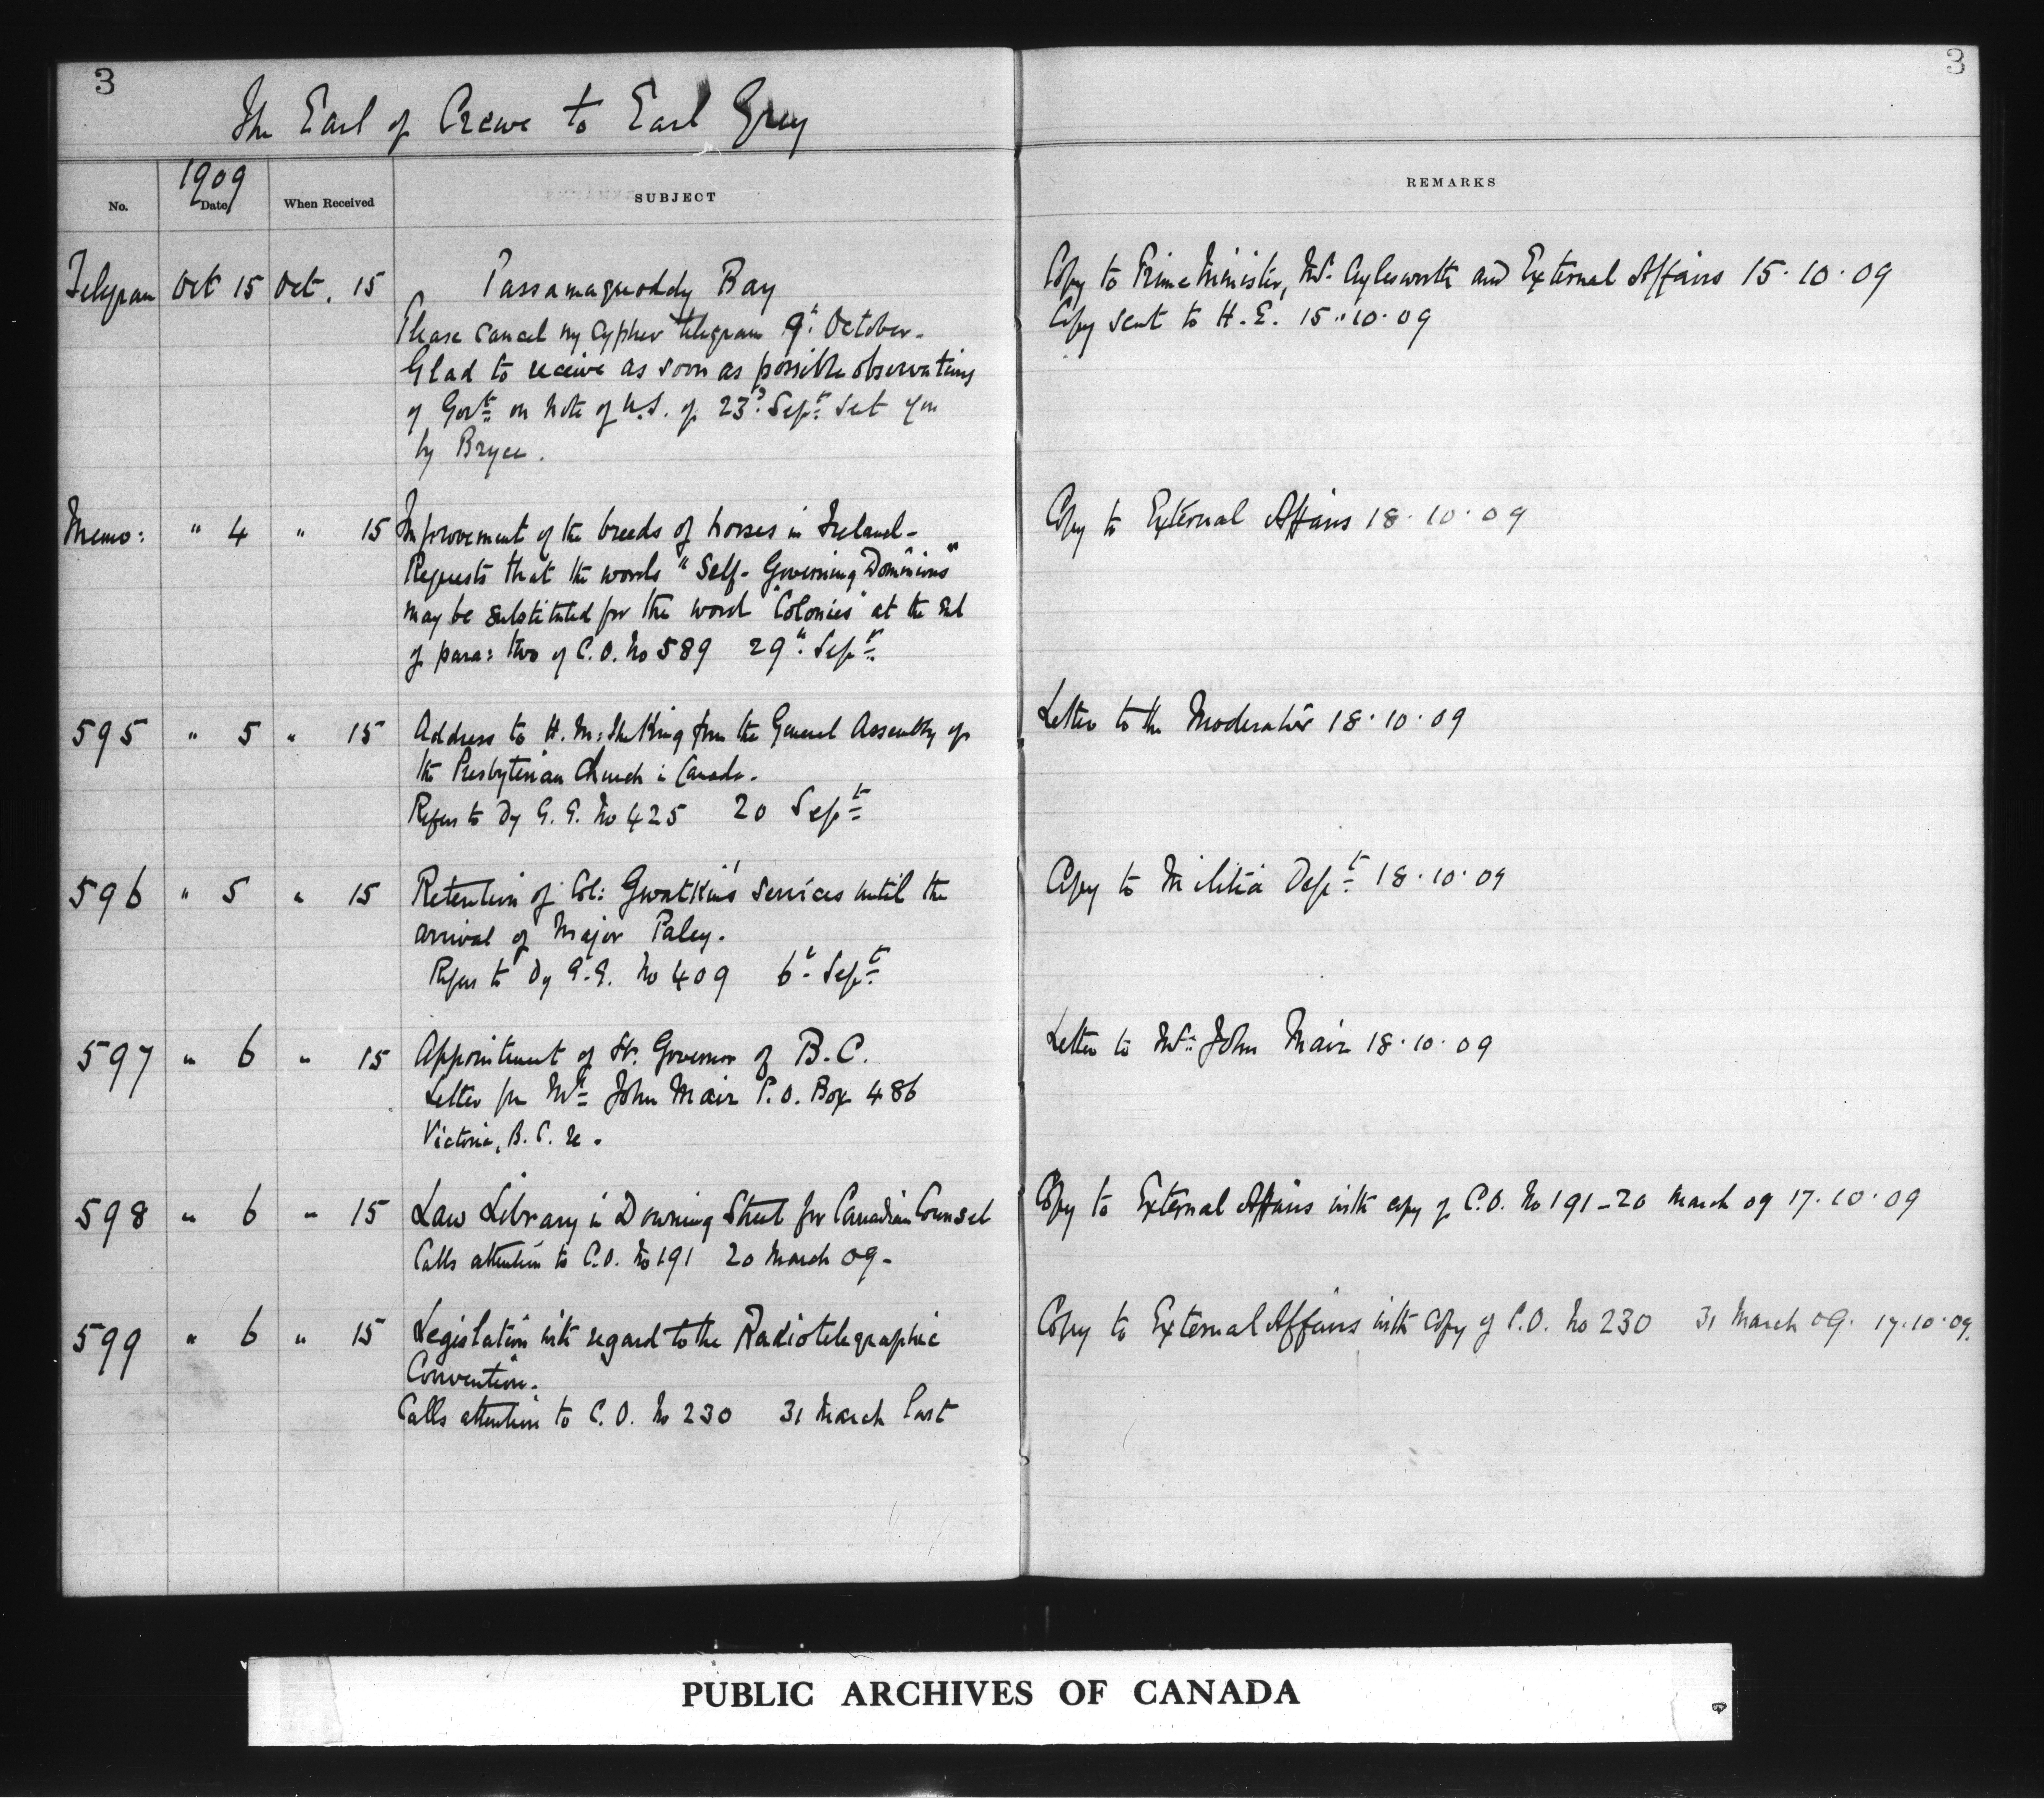 3
3
The Earl of Crewe to Earl Grey
1909
No.
Date
When Received
SUBJECT
REMARKS
Telegram Oct 15 Oct. 15 Passamaquoddy Bay
Please cancel my cypher telegram 9th October.
Glad to receive as soon as possible observations
of Govt on Note of U.S. of 23d Sept sent you
by Bryce.
Copy to Prime Minister, Mr Aylesworth and External Affairs 15.10.09
Copy sent to H.E. 15.10.09
Memo: " 4 " 15 Improvement of the breeds of horses in Ireland -
Requests that the words "Self-Governing Dominions"
may be substituted for the word "Colonies" at the end
of para: two of C.O. No 589 29th Sept
Copy to External Affairs 18.10.09
595 " 5 " 15 Address to H.M: the King from the General Assembly of
the Presbyterian Church in Canada.
Refers to Dy G.G. No 425 20 Sept
Letter to the Moderator 18.10.09
596 " 5 " 15 Retention of Col: Gwatkin's services until the
arrival of Major Paley.
Refers to Dy G.G. No 409 6th Sept
Copy to Militia Dept 18.10.09
597 " 6 " 15 Appointment of Lt. Governor of B.C.
Letter fm Mr John Mair P.O. Box 486
Victoria, B.C. re.
Letter to Mr John Mair 18.10.09
598 " 6 " 15 Law Library in Downing Street for Canadian Counsel
Calls attention to C.O. No 191 20 March 09 -
Copy to External Affairs with copy of C.O. No 191 - 20 March 09 17.10.09
599 " 6 " 15 Legislation with regard to the Radiotelegraphic
Convention.
Calls attention to C.O. No 230 31 March last
Copy to External Affairs with copy of C.O. No 230 31 March 09. 17.10.09.
PUBLIC ARCHIVES OF CANADA